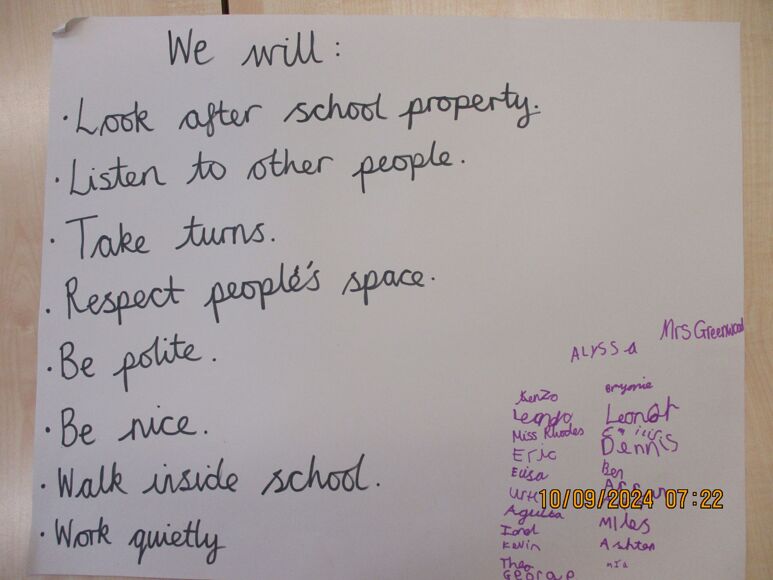 We will:
· Look after school property.
· Listen to other people.
· Take turns.
· Respect people's space.
· Be polite.
· Be nice.
· Walk inside school.
· Work quietly
Mrs Greenwood
ALYSSa
Kenzo
Bryonie
Leonardo
Miss Rhodes
Eric
Dennis
Elisa
Ben
10/09/2024 07:22
Miles
Kevin
Ashton
Theo
nia
George